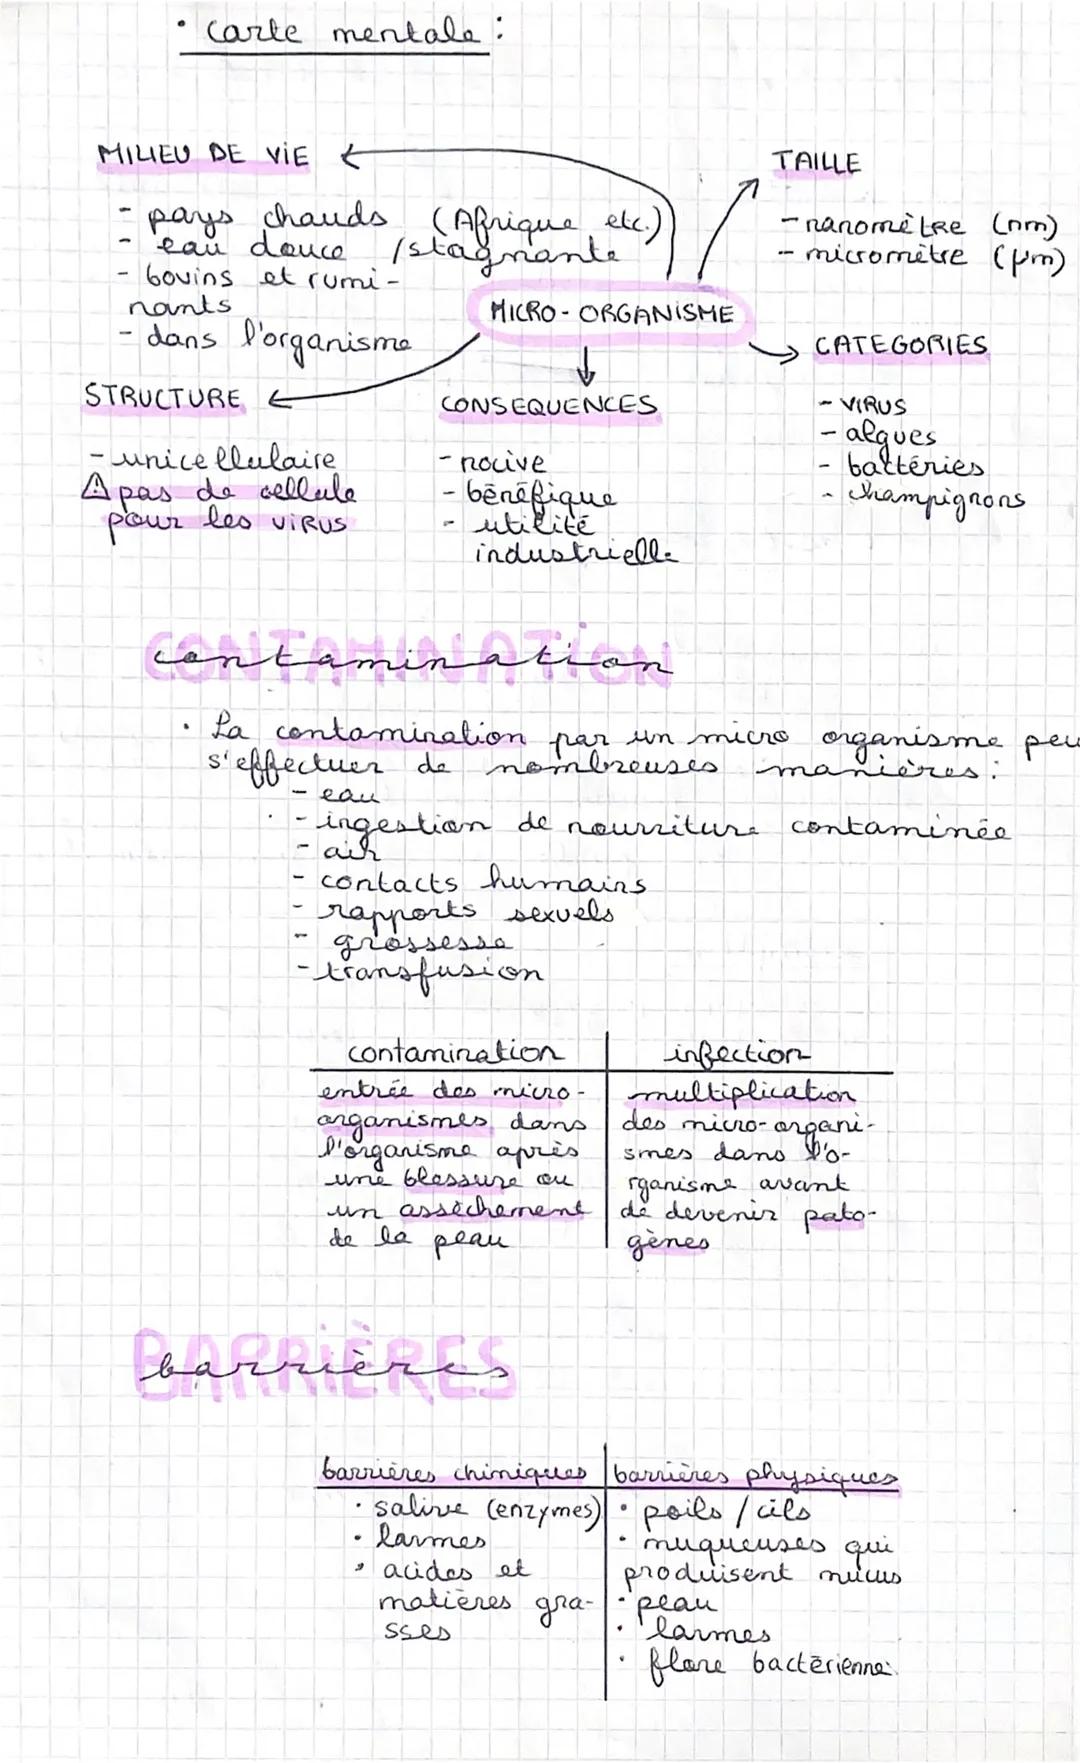 • carte mentale :
MILIEU DE ViE
- pays chauds (Afrique etc.)
- eau douce /stagnante
- bovins et rumi-
nants
- dans l'organisme
TAILLE
- nanomètre (nm)
- micromètre (µm)
MICRO-ORGANiSME
CATEGORIES
- ViRUS
- algues
- bactéries
- champignons
STRUCTURE
- unicellulaire
⚠ pas de cellule
pour les ViRUS
CONSEQUENCES
- nocive
- bénéfique
- utilité
industrielle
CONTAMINATiON
contamination
• La contamination par un micro organisme peu
s'effectuer de nombreuses manières :
- eau
- ingestion de nourriture contaminée
- air
- contacts humains
- rapports sexuels
- grossesse
- transfusion
contamination
entrée des micro-
organismes dans
l'organisme après
une blessure ou
un assèchement
de la peau
infection
multiplication
des micro-organi-
smes dans l'o-
rganisme avant
de devenir pato-
gènes
BARRiÈRES
barrières
barrières chimiques
• salive (enzymes)
• larmes
• acides et
matières gra-
sses
barrières physiques
• poils / cils
• muqueuses qui
produisent mucus
• peau
• larmes
• flore bactérienne